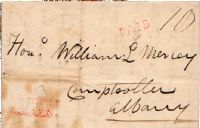 10
Hon. William L Mercey
Comptroller
Albany